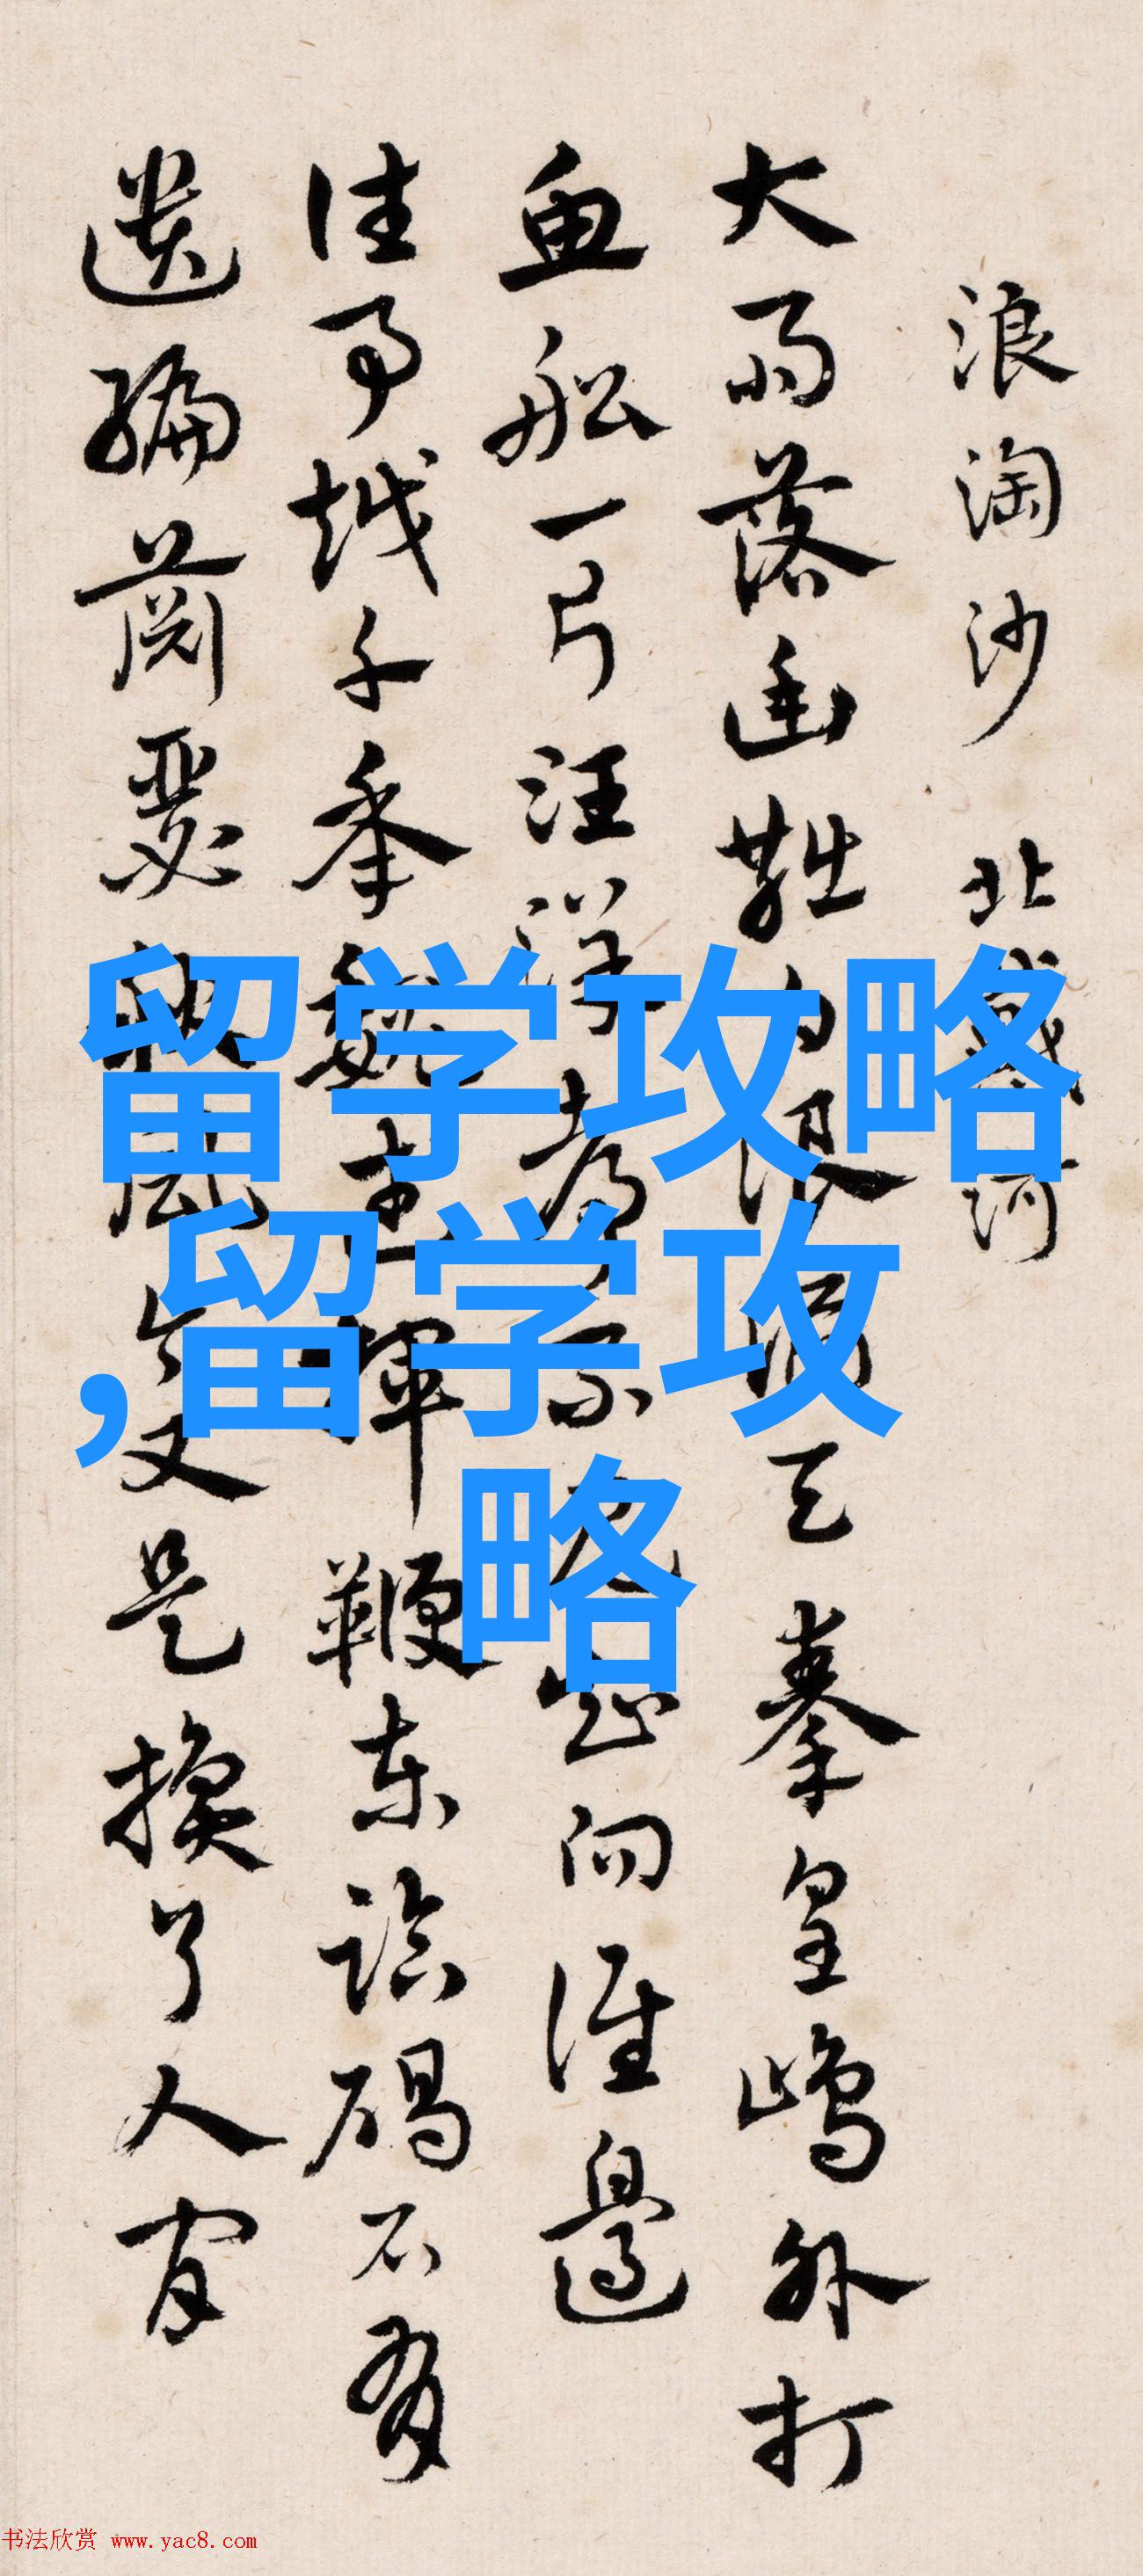 浪淘沙 北戴河
大雨落幽燕白浪滔天秦皇島外打
魚船一片汪洋都不見知向誰邊
往事越千年魏武揮鞭東臨碣石有
遺編蕭瑟秋風今又是換了人間
留学攻略
,留学攻
略
书法欣赏 www.yac8.com